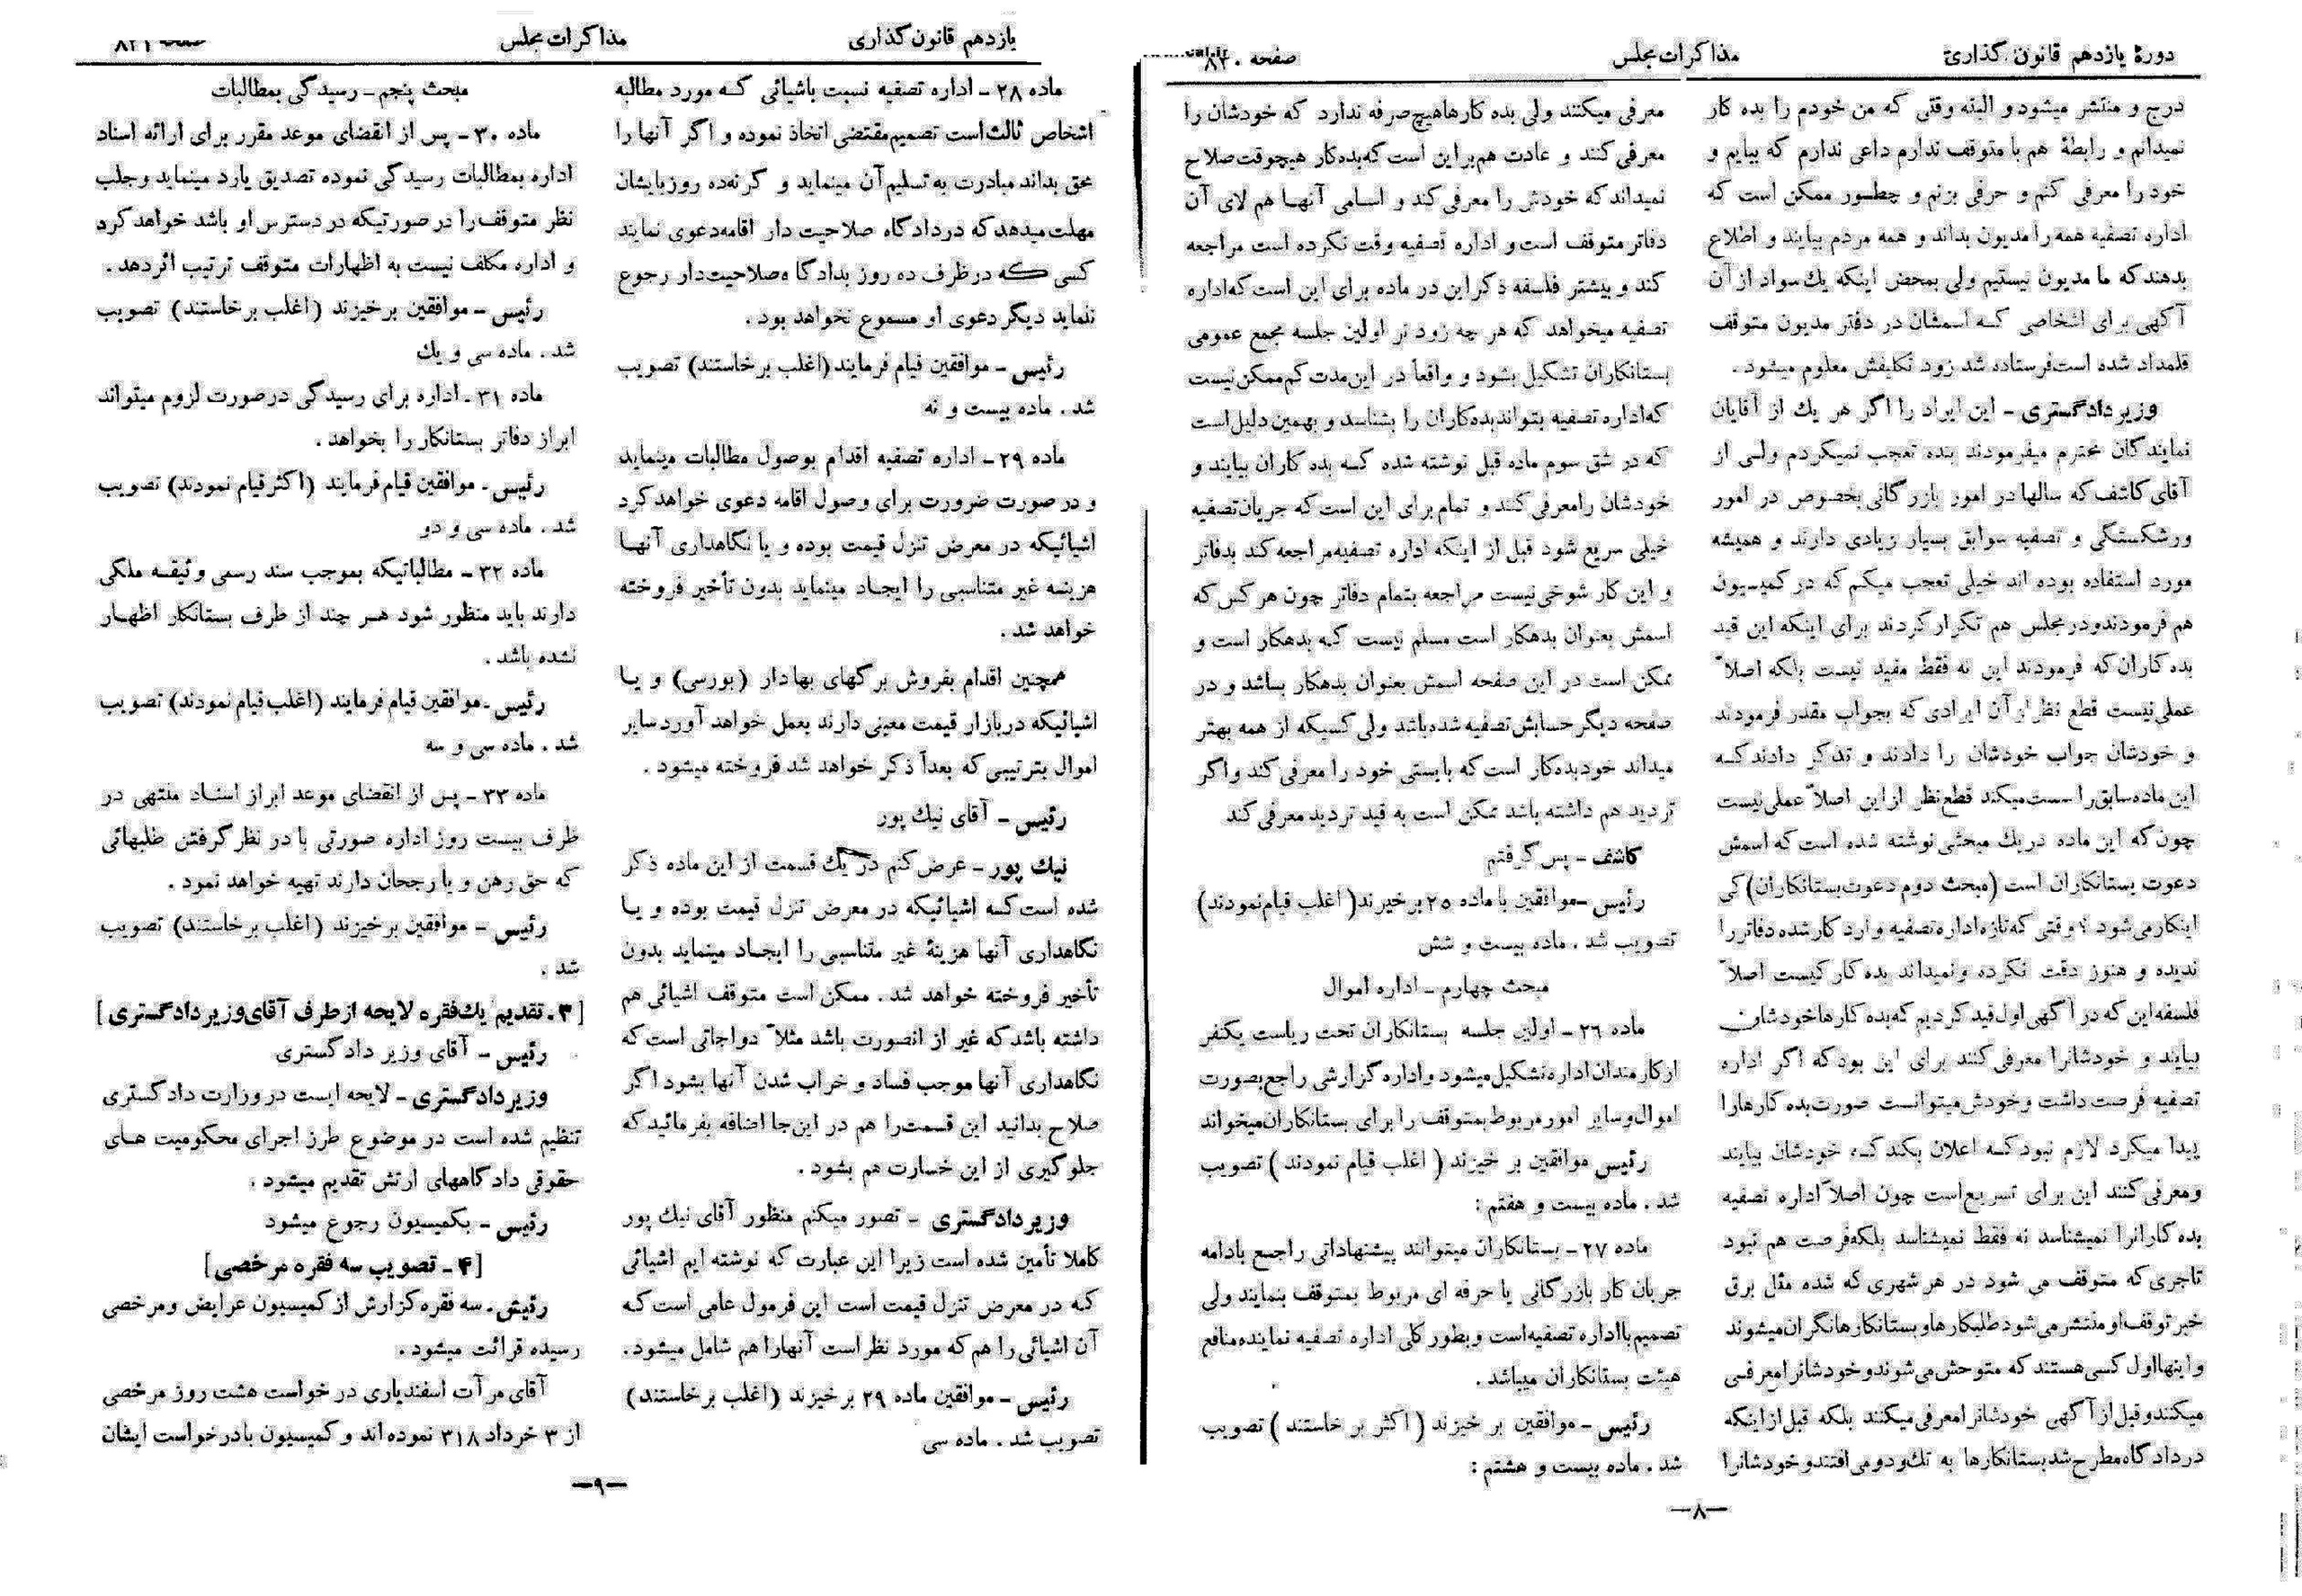 دورهٔ یازدهم قانون گذاری
مذاکرات مجلس
صفحه ۸۲۰
درج و منتشر میشود و البته وقتی که من خودم را بده کار
نمیدانم و رابطهٔ هم با متوقف ندارم داعی ندارم که بیایم و
خود را معرفی کنم و حرفی بزنم و چطور ممکن است که
اداره تصفیه همه را مدیون بداند و همه مردم بیایند و اطلاع
بدهند که ما مدیون نیستیم ولی بمحض اینکه یك سواد از آن
آگهی برای اشخاصی که اسمشان در دفتر مدیون متوقف
قلمداد شده است فرستاده شد زود تکلیفش معلوم میشود.
وزیر دادگستری - این ایراد را اگر هر یك از آقایان
نمایندگان محترم میفرمودند بنده تعجب نمیکردم ولی از
آقای کاشف که سالها در امور بازرگانی بخصوص در امور
ورشکستگی و تصفیه سوابق بسیار زیادی دارند و همیشه
مورد استفاده بوده اند خیلی تعجب میکم که در کمیسیون
هم فرمودند و در مجلس هم تکرار کردند برای اینکه این قید
بده کاران که فرمودند این نه فقط مفید نیست بلکه اصلاً
عملی نیست قطع نظر از آن ایرادی که بجواب مقدر فرمودند
و خودشان جواب خودشان را دادند و تذکر دادند که
این ماده سابق را سست میکند قطع نظر از این اصلاً عملی نیست
چون که این ماده در یك مبحثی نوشته شده است که اسمش
دعوت بستانکاران است (مبحث دوم دعوت بستانکاران) کی
اینکار می شود ؟ وقتی که تازه اداره تصفیه وارد کار شده دفاتر را
ندیده و هنوز دقت نکرده و نمیداند بده کار کیست اصلاً
فلسفه این که در آگهی اول قید کردیم که بده کارها خودشان
بیایند و خودشانرا معرفی کنند برای این بود که اگر اداره
تصفیه فرصت داشت و خودش میتوانست صورت بده کارها را
پیدا میکرد لازم نبود که اعلان بکند که خودشان بیایند
و معرفی کنند این برای تسریع است چون اصلاً اداره تصفیه
بده کارانرا نمیشناسد نه فقط نمیشناسد بلکه فرصت هم نبود
تاجری که متوقف می شود در هر شهری که شده مثل برق
خبر توقف او منتشر می شود طلبکارها و بستانکارها نگران میشوند
و اینها اول کسی هستند که متوحش می شوند و خودشانرا معرفی
میکنند و قبل از آگهی خودشانرا معرفی میکنند بلکه قبل از اینکه
در دادگاه مطرح شد بستانکارها به تك و دو می افتند و خودشانرا
معرفی میکنند ولی بده کارها هیچ صرفه ندارد که خودشان را
معرفی کنند و عادت هم بر این است که بده کار هیچوقت صلاح
نمیداند که خودش را معرفی کند و اسامی آنها هم لای آن
دفاتر متوقف است و اداره تصفیه وقت نکرده است مراجعه
کند و بیشتر فلسفه ذکر این در ماده برای این است که اداره
تصفیه میخواهد که هر چه زود تر اولین جلسه مجمع عمومی
بستانکاران تشکیل بشود و واقعاً در این مدت کم ممکن نیست
که اداره تصفیه بتواند بده کاران را بشناسد و بهمین دلیل است
که در شق سوم ماده قبل نوشته شده که بده کاران بیایند و
خودشان را معرفی کنند و تمام برای این است که جریان تصفیه
خیلی سریع شود قبل از اینکه اداره تصفیه مراجعه کند بدفاتر
و این کار شوخی نیست مراجعه بتمام دفاتر چون هر کس که
اسمش بعنوان بدهکار است مسلم نیست که بدهکار است و
ممکن است در این صفحه اسمش بعنوان بدهکار بساشد و در
صفحه دیگر حسابش تصفیه شده باشد ولی کسیکه از همه بهتر
میداند خود بده کار است که بایستی خود را معرفی کند و اگر
تردید هم داشته باشد ممکن است به قید تردید معرفی کند
کاشف - پس گرفتم
رئیس - موافقین با ماده ۲۵ برخیزند (اغلب قیام نمودند)
تصویب شد . ماده بیست و شش
مبحث چهارم - اداره اموال
ماده ۲۶ - اولین جلسه بستانکاران تحت ریاست یکنفر
از کارمندان اداره تشکیل میشود و اداره گزارشی راجع بصورت
اموال و سایر امور مربوط بمتوقف را برای بستانکاران میخواند
رئیس موافقین بر خیزند ( اغلب قیام نمودند ) تصویب
شد . ماده بیست و هفتم :
ماده ۲۷ - بستانکاران میتوانند پیشنهاداتی راجع بادامه
جریان کار بازرگانی یا حرفه ای مربوط بمتوقف بنمایند ولی
تصمیم با اداره تصفیه است و بطور کلی اداره تصفیه نماینده منافع
هیئت بستانکاران میباشد .
رئیس - موافقین بر خیزند ( اکثر بر خاستند ) تصویب
شد . ماده بیست و هشتم :
—۸—
یازدهم قانون گذاری
مذاکرات مجلس
صفحه ۸۲۱
ماده ۲۸ - اداره تصفیه نسبت باشیائی که مورد مطالبه
اشخاص ثالث است تصمیم مقتضی اتخاذ نموده و اگر آنها را
محق بداند مبادرت به تسلیم آن مینماید و گرنه ده روز بایشان
مهلت میدهد که در دادگاه صلاحیت دار اقامه دعوی نمایند
کسی که در ظرف ده روز بدادگاه صلاحیت دار رجوع
ننماید دیگر دعوی او مسموع نخواهد بود .
رئیس - موافقین قیام فرمایند (اغلب بر خاستند) تصویب
شد . ماده بیست و نه
ماده ۲۹ - اداره تصفیه اقدام بوصول مطالبات مینماید
و در صورت ضرورت برای وصول اقامه دعوی خواهد کرد
اشیائیکه در معرض تنزل قیمت بوده و یا نگاهداری آنها
هزینه غیر متناسبی را ایجاد مینماید بدون تأخیر فروخته
خواهد شد .
همچنین اقدام بفروش برگهای بهادار (بورسی) و یا
اشیائیکه در بازار قیمت معینی دارند بعمل خواهد آورد سایر
اموال بترتیبی که بعداً ذکر خواهد شد فروخته میشود .
رئیس - آقای نیك پور
نیك پور - عرض کنم در یك قسمت از این ماده ذکر
شده است که اشیائیکه در معرض تنزل قیمت بوده و یا
نگاهداری آنها هزینهٔ غیر متناسبی را ایجاد مینماید بدون
تأخیر فروخته خواهد شد . ممکن است متوقف اشیائی هم
داشته باشد که غیر از انصورت باشد مثلاً دواجاتی است که
نگاهداری آنها موجب فساد و خراب شدن آنها بشود اگر
صلاح بدانید این قسمت را هم در این جا اضافه بفرمائید که
جلو گیری از این خسارت هم بشود .
وزیر دادگستری - تصور میکنم منظور آقای نیك پور
کاملا تأمین شده است زیرا این عبارت که نوشته ایم اشیائی
که در معرض تنزل قیمت است این فرمول عامی است که
آن اشیائی را هم که مورد نظر است آنها را هم شامل میشود .
رئیس - موافقین ماده ۲۹ بر خیزند (اغلب بر خاستند)
تصویب شد . ماده سی
مبحث پنجم - رسیدگی بمطالبات
ماده ۳۰ - پس از انقضای موعد مقرر برای ارائه اسناد
اداره بمطالبات رسیدگی نموده تصدیق یا رد مینماید و جلب
نظر متوقف را در صورتیکه در دسترس او باشد خواهد کرد
و اداره مکلف نیست به اظهارات متوقف ترتیب اثر دهد .
رئیس - موافقین بر خیزند (اغلب بر خاستند) تصویب
شد . ماده سی و یك
ماده ۳۱ - اداره برای رسیدگی در صورت لزوم میتواند
ابراز دفاتر بستانکار را بخواهد .
رئیس - موافقین قیام فرمایند (اکثر قیام نمودند) تصویب
شد . ماده سی و دو
ماده ۳۲ - مطالباتیکه بموجب سند رسمی وثیقه ملکی
دارند باید منظور شود هر چند از طرف بستانکار اظهار
نشده باشد .
رئیس - موافقین قیام فرمایند (اغلب قیام نمودند) تصویب
شد . ماده سی و سه
ماده ۳۳ - پس از انقضای موعد ابراز اسناد منتهی در
ظرف بیست روز اداره صورتی با در نظر گرفتن طلبهائی
که حق رهن و یا رجحان دارند تهیه خواهد نمود .
رئیس - موافقین بر خیزند (اغلب بر خاستند) تصویب
شد .
[۳ - تقدیم یك فقره لایحه از طرف آقای وزیر دادگستری]
رئیس - آقای وزیر دادگستری
وزیر دادگستری - لایحه ایست در وزارت دادگستری
تنظیم شده است در موضوع طرز اجرای محکومیت های
حقوقی دادگاههای ارتش تقدیم میشود .
رئیس - بکمیسیون رجوع میشود
[۴ - تصویب سه فقره مرخصی]
رئیش - سه فقره گزارش از کمیسیون عرایض و مرخصی
رسیده قرائت میشود .
آقای مرآت اسفندیاری در خواست هشت روز مرخصی
از ۳ خرداد ۳۱۸ نموده اند و کمیسیون با درخواست ایشان
—۹—